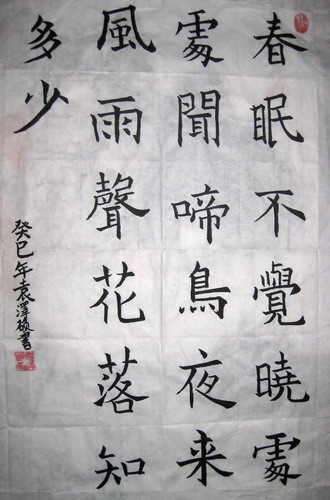 春眠不覺曉處
處聞啼鳥夜来
風雨聲花落知
多少
癸巳年袁澤後書